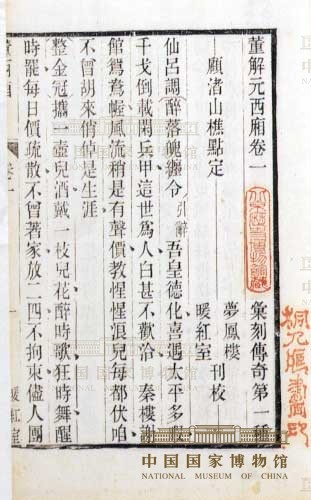 董解元西廂卷一
彙刻傳奇第一種
顧渚山樵點定
夢鳳樓
暖紅室
刊校
仙呂調醉落魄纏令 引辭 吾皇德化喜遇太平多暇
干戈倒載閑兵甲這世為人白甚不歡洽 秦樓謝
館鴛鴦幄風流稍是有聲價教惺惺浪兒每都伏咱
不曾胡來俏倬是生涯
整金冠攜一壺兒酒戴一枝兒花醉時歌狂時舞醒
時罷每日價疏散不曾著家放二四不拘束儘人團
卷一
暖紅室
中国国家博物馆
NATIONAL MUSEUM OF CHINA